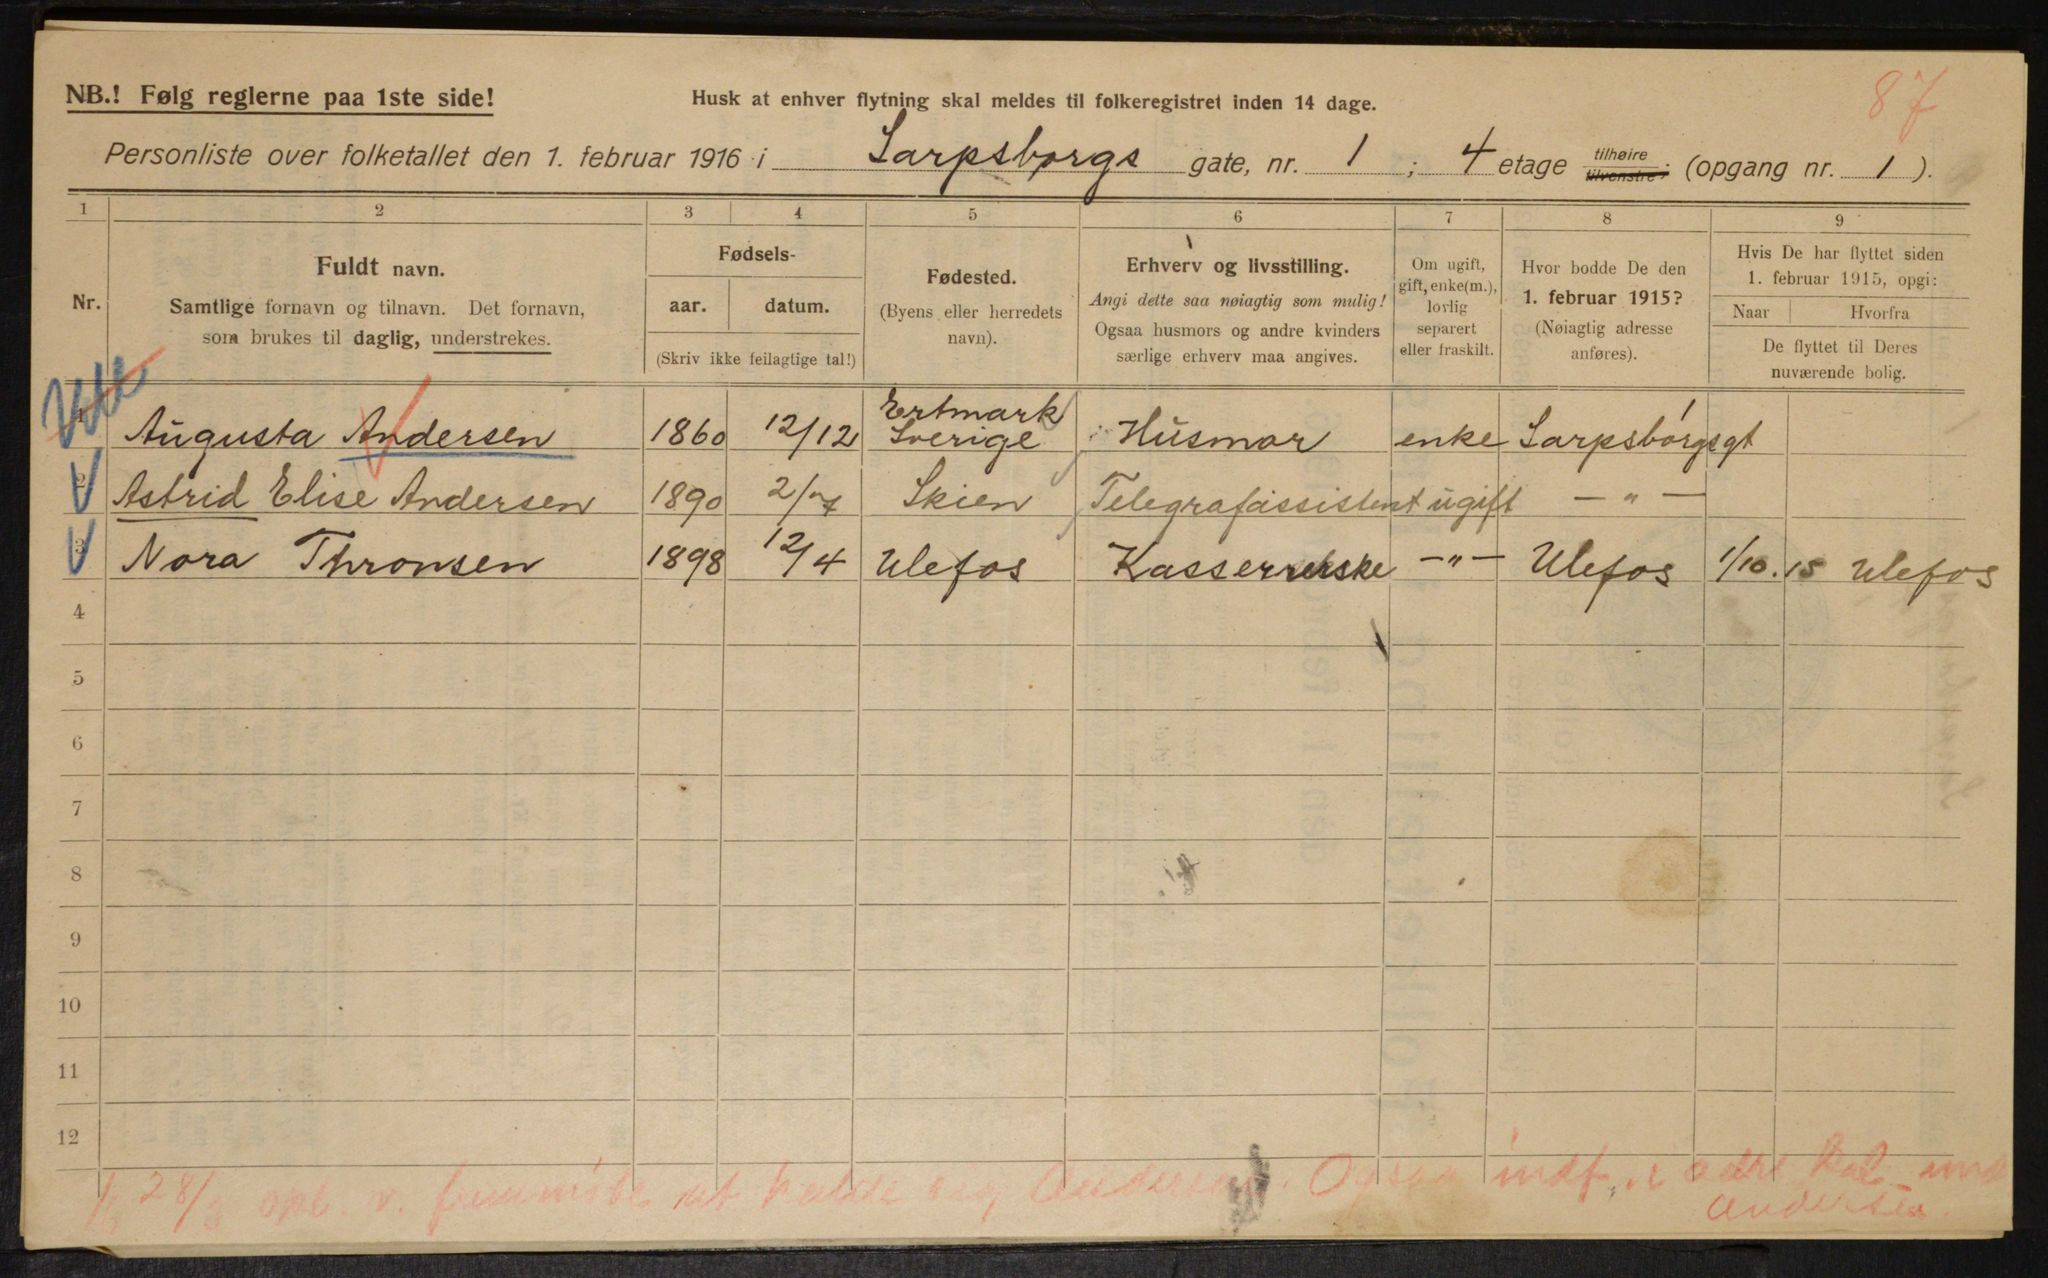 87
NB.! Følg reglerne paa 1ste side!
Husk at enhver flytning skal meldes til folkeregistret inden 14 dage.
Personliste over folketallet den 1. februar 1916 i Sarpsborgs gate, nr. 1 ; 4 etage tilhøire tilvenstre; (opgang nr. 1).
1 2 3 4 5 6 7 8 9
Nr.
Fuldt navn.
Samtlige fornavn og tilnavn. Det fornavn,
som brukes til daglig, understrekes.
Fødsels-
aar. datum.
(Skriv ikke feilagtige tal!)
Fødested.
(Byens eller herredets
navn).
Erhverv og livsstilling.
Angi dette saa nøiagtig som mulig!
Ogsaa husmors og andre kvinders
særlige erhverv maa angives.
Om ugift,
gift, enke(m.),
lovlig
separert
eller fraskilt.
Hvor bodde De den
1. februar 1915?
(Nøiagtig adresse
anføres).
Hvis De har flyttet siden
1. februar 1915, opgi:
Naar Hvorfra
De flyttet til Deres
nuværende bolig.
1 Augusta Andersen 1860 12/12 Ertmark Sverige Husmor enke Sarpsborgsgt
2 Astrid Elise Andersen 1890 2/7 Skien Telegrafassistent ugift — " —
3 Nora Thronsen 1898 12/4 Ulefos Kassererske — " — Ulefos 1/10.15 Ulefos
4
5
6
7
8
9
10
11
12
28/3 opl. v. at kalde sig Andersen. Ogsaa indf. i
Andersen.